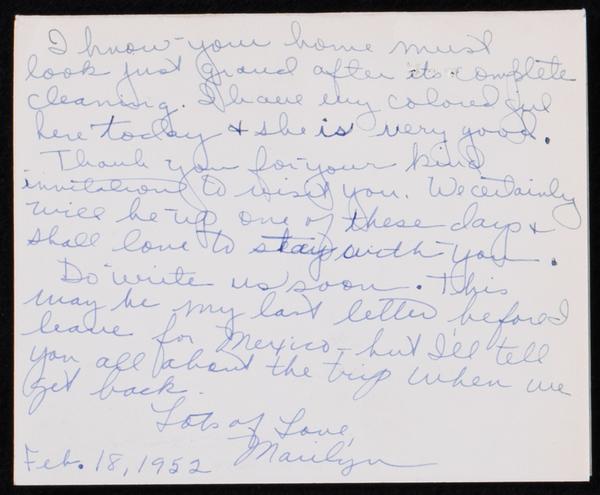 I know your home must
look just grand after its complete
cleaning. I have my colored girl
here today & she is very good.
Thank you for your kind
invitation to visit you. We certainly
will be up one of these days &
shall love to stay with you.
Do write us soon. This
may be my last letter before I
leave for Mexico, but I'll tell
you all about the trip when we
get back.
Lots of Love,
Marilyn
Feb. 18, 1952